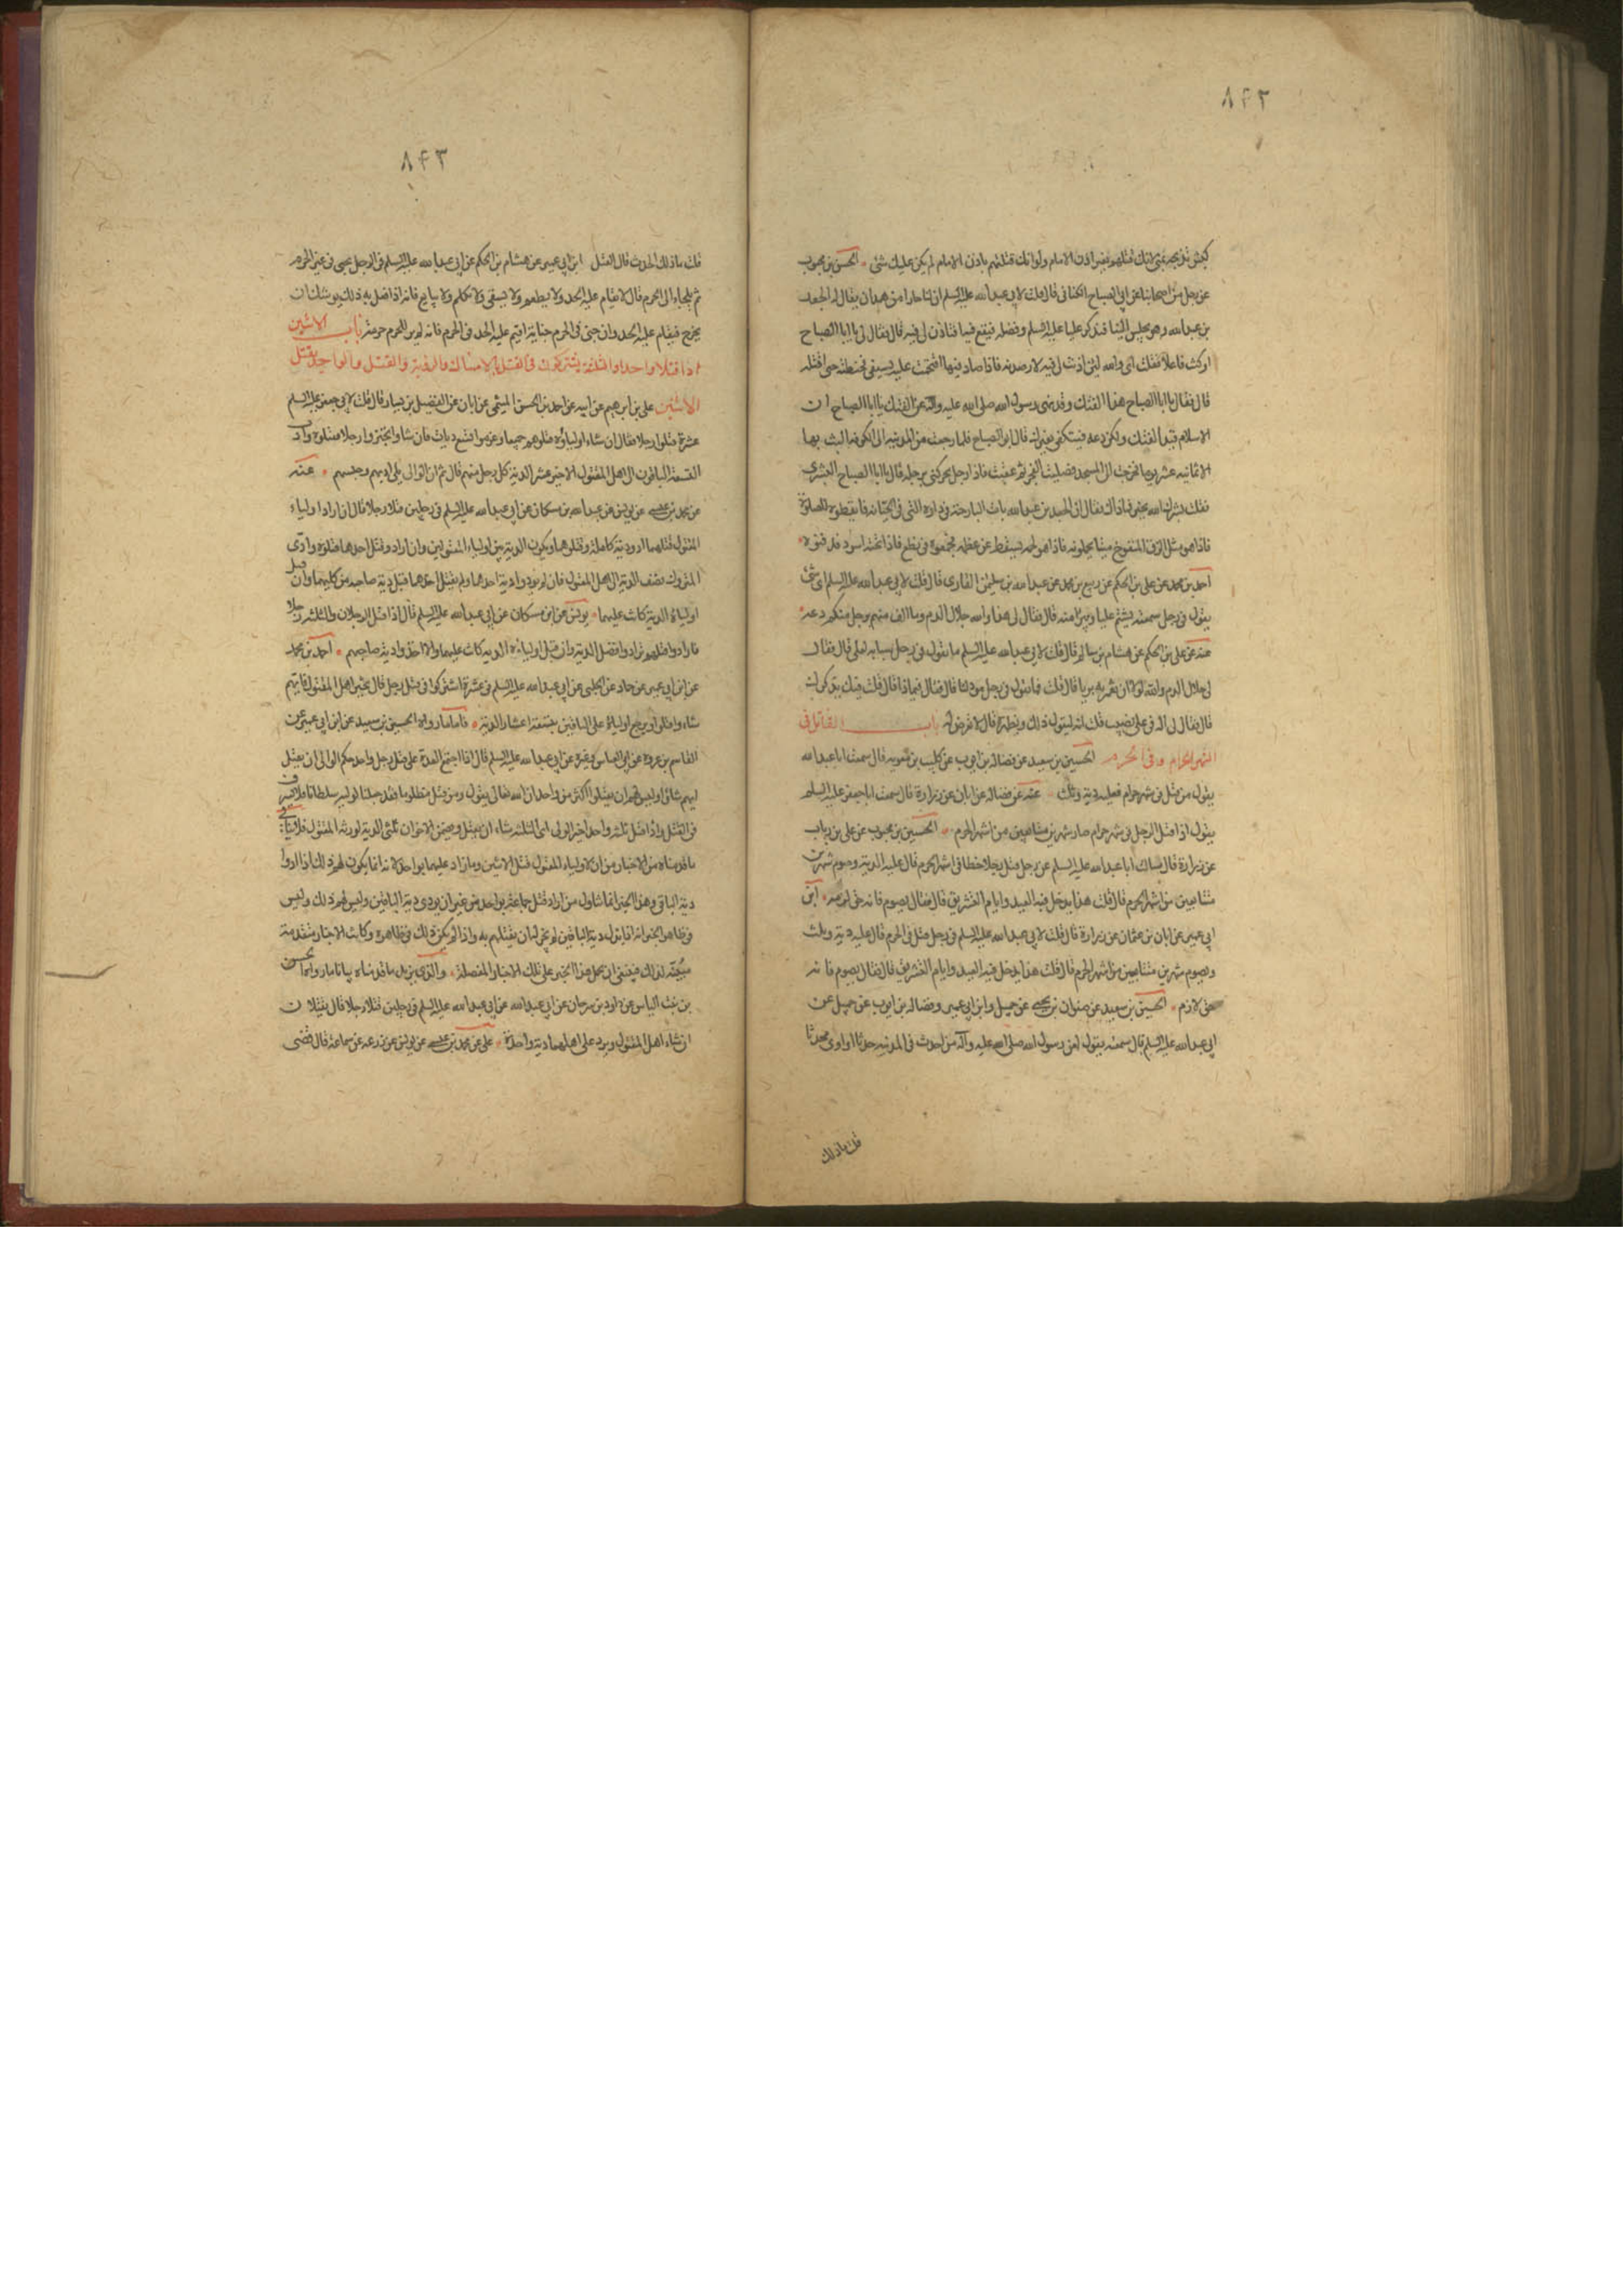 ٨۴٢
كبش تذبحه بمنى لانك قتلتهم بغير اذن الامام ولو انك قتلتهم باذن الامام لم يكن عليك شئ الحسن بن محبوب
عن رجل من اصحابنا عن ابى الصباح الكنانى قال قلت لابى عبدالله عليه السلم ان لنا جارا من همدان يقال له الجعد
بن عبدالله وهو يجلس الينا فنذكر عليا عليه السلم وفضله فيقع فيه افتاذن لى فيه قال فقال لى يا ابا الصباح
او كنت فاعلا فقلت اى والله لئن اذنت لى فيه لارصدنه فاذا صار فيها اقتحمت عليه بسيفى فخبطته حتى اقتله
قال فقال يا ابا الصباح هذا الفتك وقد نهى رسول الله صلى الله عليه وآله عن الفتك يا ابا الصباح ان
الاسلام قيد الفتك ولكن دعه فستكفى بغيرك قال ابو الصباح فلما رجعت من المدينه الى الكوفه لم البث بها
الا ثمانيه عشر يوما فخرجت الى المسجد فصليت الفجر ثم عقبت فاذا رجل يحركنى برجله قال يا ابا الصباح البشرى
فقلت بشرك الله بخير فما ذاك فقال ان الجعد بن عبدالله بات البارحة فى داره التى فى الجبانه فايقظوه للصلوة
فاذا هو مثل الزق المنفوخ ميتا فذهبوا يحملونه فاذا لحمه يسقط عن عظمه فجمعوه فى نطع فاذا تحته اسود فدفنوه
احمد بن محمد عن على بن الحكم عن ربيع بن محمد عن عبدالله بن سليمن العامرى قال قلت لابى عبدالله عليه السلم اى شئ
يقول فى رجل سمعته يشتم عليا ويبرا منه قال فقال لى هو والله حلال الدم وما الف منهم برجل منكم دعه
عنه عن على بن الحكم عن هشام بن سالم قال قلت لابى عبدالله عليه السلم ما تقول فى رجل سبابه لعلى قال فقال
لى حلال الدم والله لولا ان تعم به بريا قال قلت فما تقول فى رجل موذ لنا قال فقال فيماذا قال قلت فيك يذكرك
قال فقال لى اله فى على نصيب قلت انه ليقول ذلك ويظهره قال لا تعرض له باب القاتل فى
الشهر الحرام وفى الحرم الحسين بن سعيد عن فضاله بن ايوب عن كليب بن معويه قال سمعت ابا عبدالله
يقول من قتل فى شهر حرام فعليه دية وثلث عنه عن فضاله عن ابان عن زرارة قال سمعت ابا جعفر عليه السلم
يقول اذا قتل الرجل فى شهر حرام صام شهرين متتابعين من اشهر الحرم الحسين بن محبوب عن على بن رياب
عن زرارة قال سالت ابا عبدالله عليه السلم عن رجل قتل رجلا خطا فى اشهر الحرم قال عليه الدية وصوم شهرين
متتابعين من اشهر الحرم قال قلت هذا يدخل فيه العيد وايام التشريق قال فقال يصوم فانه حق لزمه ابن
ابى عمير عن ابان بن عثمان عن زرارة قال قلت لابى عبدالله عليه السلم فى رجل قتل فى الحرم قال عليه دية وثلث
ويصوم شهرين متتابعين من اشهر الحرم قال قلت هذا يدخل فيه العيد وايام التشريق قال فقال يصوم فانه
حق لازم الحسين بن سعيد عن صفوان بن يحيى عن جميل وابن ابى عمير وفضاله بن ايوب عن جميل عن
ابى عبدالله عليه السلم قال سمعته يقول لعن رسول الله صلى الله عليه وآله من احدث فى المدينه حدثا او اوى محدثا
قلت ما ذلك
٨۴٣
قلت ما ذلك الحدث قال القتل ابن ابى عمير عن هشام بن الحكم عن ابى عبدالله عليه السلم فى الرجل يجنى فى غير الحرم
ثم يلجاء الى الحرم قال لا يقام عليه الحد ولا يطعم ولا يسقى ولا يكلم ولا يبايع فانه اذا فعل به ذلك يوشك ان
يخرج فيقام عليه الحد وان جنى فى الحرم جناية اقيم عليه الحد فى الحرم فانه لم ير للحرم حرمة باب الاثنين
اذا قتلا واحدا والثلثة يشتركون فى القتل بالامساك والرؤية والقتل والواحد يقتل
الاثنين على بن ابرهيم عن ابيه عن احمد بن الحسن الميثمى عن ابان عن الفضيل بن يسار قال قلت لابى جعفر عليه السلم
عشرة قتلوا رجلا فقال ان شاء اولياؤه قتلوهم جميعا وغرموا تسع ديات فان شاوا تخيروا رجلا فقتلوه وادى
التسعة الباقون الى اهل المقتول الاخير عشر الدية كل رجل منهم قال ثم ان الوالى يلى ادبهم وحبسهم عنه
عن محمد بن عيسى عن يونس عن عبدالله بن مسكان عن ابى عبدالله عليه السلم فى رجلين قتلا رجلا قال ان اراد اولياء
المقتول قتلهما ادوا دية كاملة وقتلوهما وتكون الدية بين اولياء المقتولين وان ارادوا قتل احدهما فقتلوه وادى
المتروك نصف الدية الى اهل المقتول فان لم يودوا دية احدهما ولم يقتل احدهما قبل دية صاحبه من كليهما وان قبل
اولياؤه الدية كانت عليهما يونس عن ابن مسكان عن ابى عبدالله عليه السلم قال اذا قتل الرجلان والثلثة رجلا
فارادوا قتلهم ترادوا فضل الدية وان قبل اولياؤه الدية كانت عليهما والا اخذوا دية صاحبهم احمد بن محمد
عن ابن ابى عمير عن حماد عن الحلبى عن ابى عبدالله عليه السلم فى عشرة اشتركوا فى قتل رجل قال يخير اهل المقتول فايهم
شاءوا قتلوا ويرجع اولياؤه على الباقين بتسعة اعشار الدية فاما ما رواه الحسين بن سعيد عن ابن ابى عمير عن
القاسم بن عروة عن ابى العباس وغيره عن ابى عبدالله عليه السلم قال اذا اجتمع العدة على قتل رجل واحد حكم الوالى ان يقتل
ايهم شاؤا وليس لهم ان يقتلوا اكثر من واحد ان الله تعالى يقول ومن قتل مظلوما فقد جعلنا لوليه سلطانا فلا يسرف
فى القتل واذا قتل ثلثة واحدا خير الوالى اى الثلثة شاء ان يقتل ويضمن الاخران ثلثى الدية لورثه المقتول فلا ينافى
ما قدمناه من الاخبار من ان لاولياء المقتول قتل الاثنين وما زاد عليهما بواحد لانه انما يكون لهم ذلك اذا ادوا
دية الباقى وهذا الخبر انما تناول من اراد قتل جماعة بواحد من غير ان يودى دية الباقين وليس لهم ذلك وليس
فى ظاهر الخبر انه اذا بذل دية الباقين لم يجز له ان يقتلهم به واذا لم يكن ذلك فى ظاهره وكانت الاخبار متقدمة
مبينة لذلك فينبغى ان يحمل هذا الخبر على تلك الاخبار المفصلة والذى يزيد ما قدمناه بيانا ما رواه الحسن
بن بنت الياس عن داود بن سرحان عن ابى عبدالله عن ابى عبدالله عليه السلم فى رجلين قتلا رجلا قال يقتلان
ان شاء اهل المقتول ويرد على اهلهما دية واحدة على عن محمد بن عيسى عن يونس عن زرعه عن سماعة قال قضى